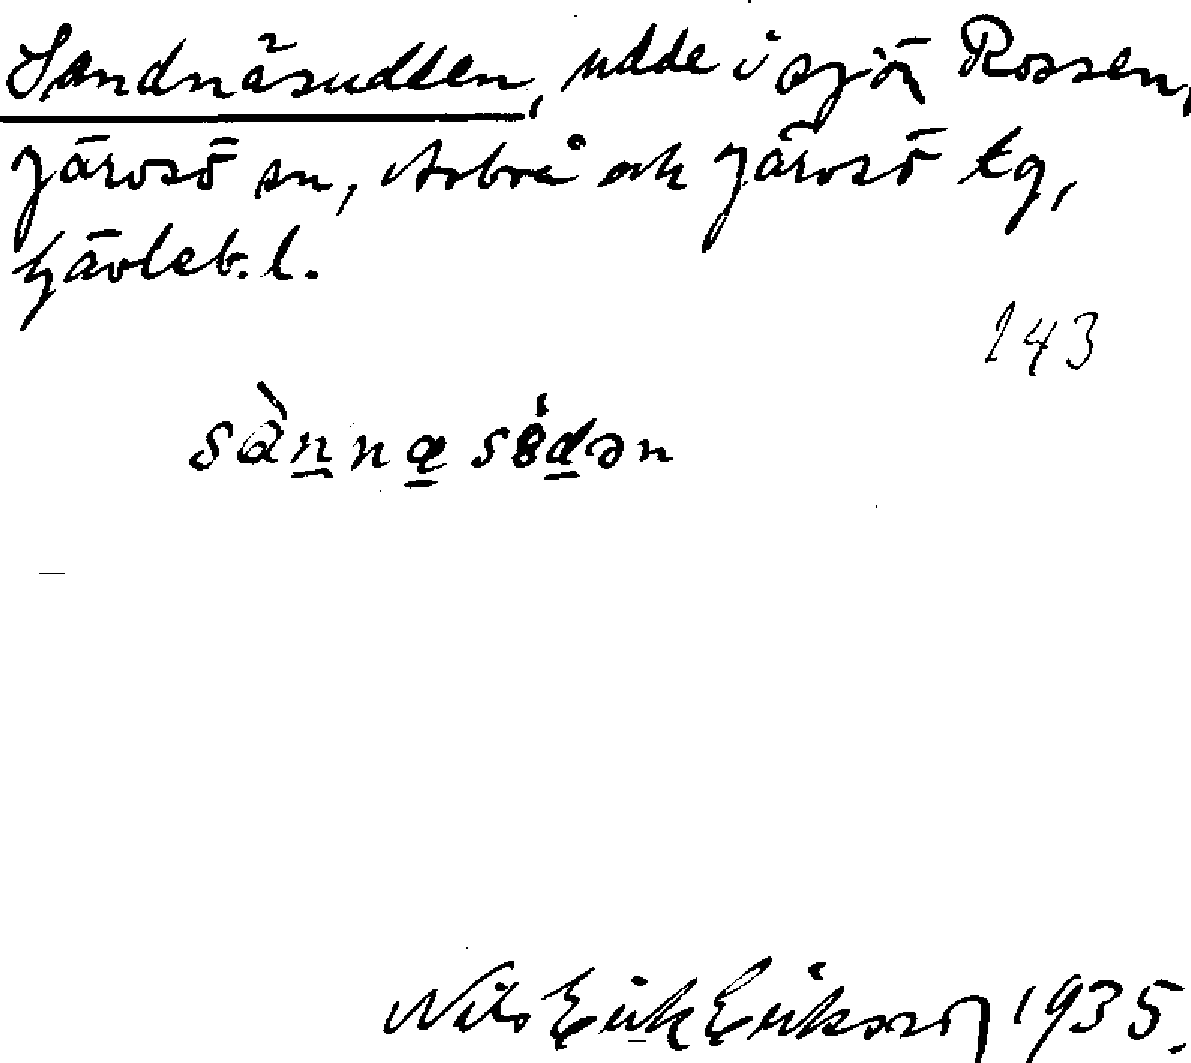 Sandnäsudden, udde i sjön Rossen,
Järvsö sn, Arbrå och Järvsö tg,
Gävleb. l.
143
sànnæsɞ́dən
Nils Erik Eriksson 1935.